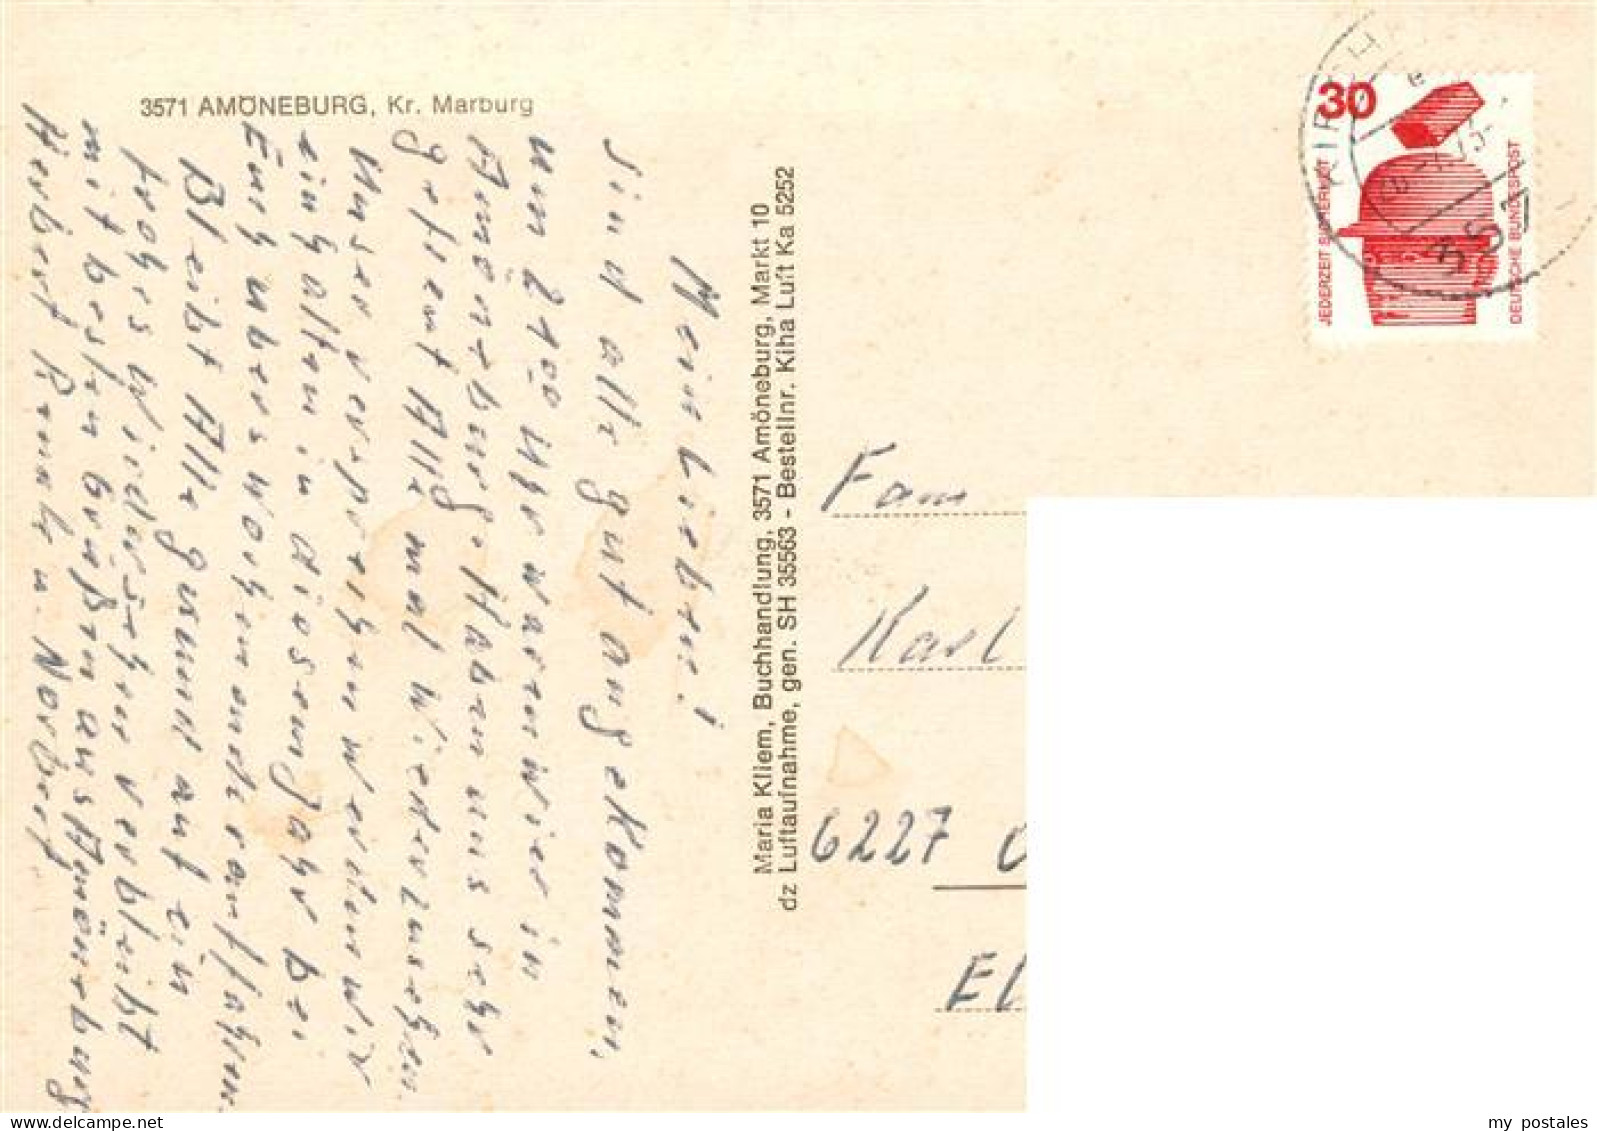 3571 AMÖNEBURG, Kr. Marburg
Mein Lieben!
Sind alle gut angekommen,
um 21 00 Uhr waren wir in
Amöneburg. Haben uns sehr
gefreut Alle mal wiederzusehen.
Unser versprechen werden wir
einhalten in diesem Jahr bei
Euch übers wochenende ranfahren.
Bleibt Alle gesund auf ein
frohes Wiedersehen verbleibt
mit besten Grüßen aus Amöneburg
Herbert Renate u. Norbert
Maria Kliem, Buchhandlung, 3571 Amöneburg, Markt 10
dz Luftaufnahme, gen. SH 35563 - Bestellnr. Kiha Luft Ka 5252
30
JEDERZEIT SICHERHEIT
DEUTSCHE BUNDESPOST
357
Fam
Karl
6227
El
my postales